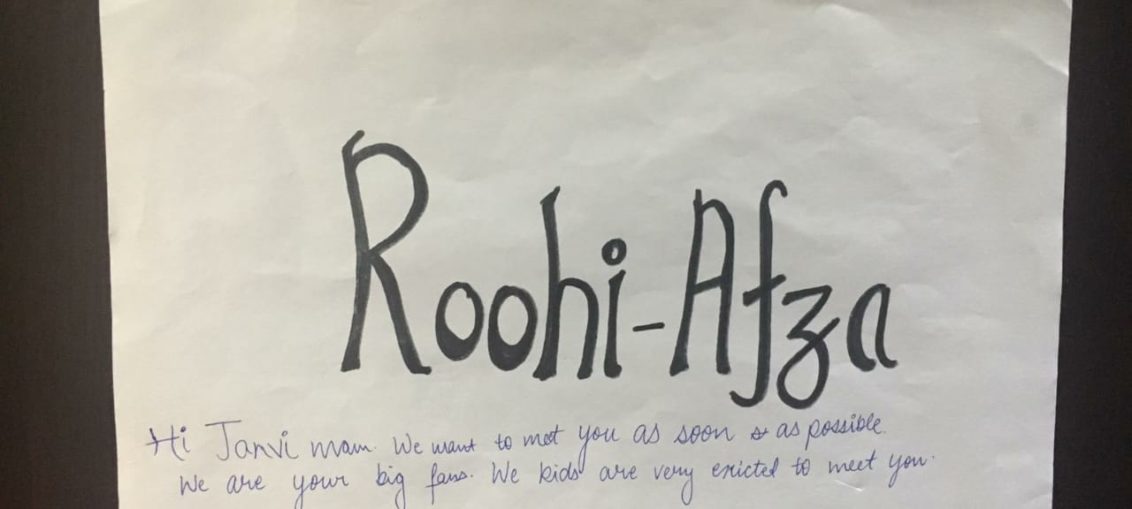 Roohi-Afza
Hi Janvi mam. We want to met you as soon as possible.
We are your big fans. We kids are very exicted to meet you.